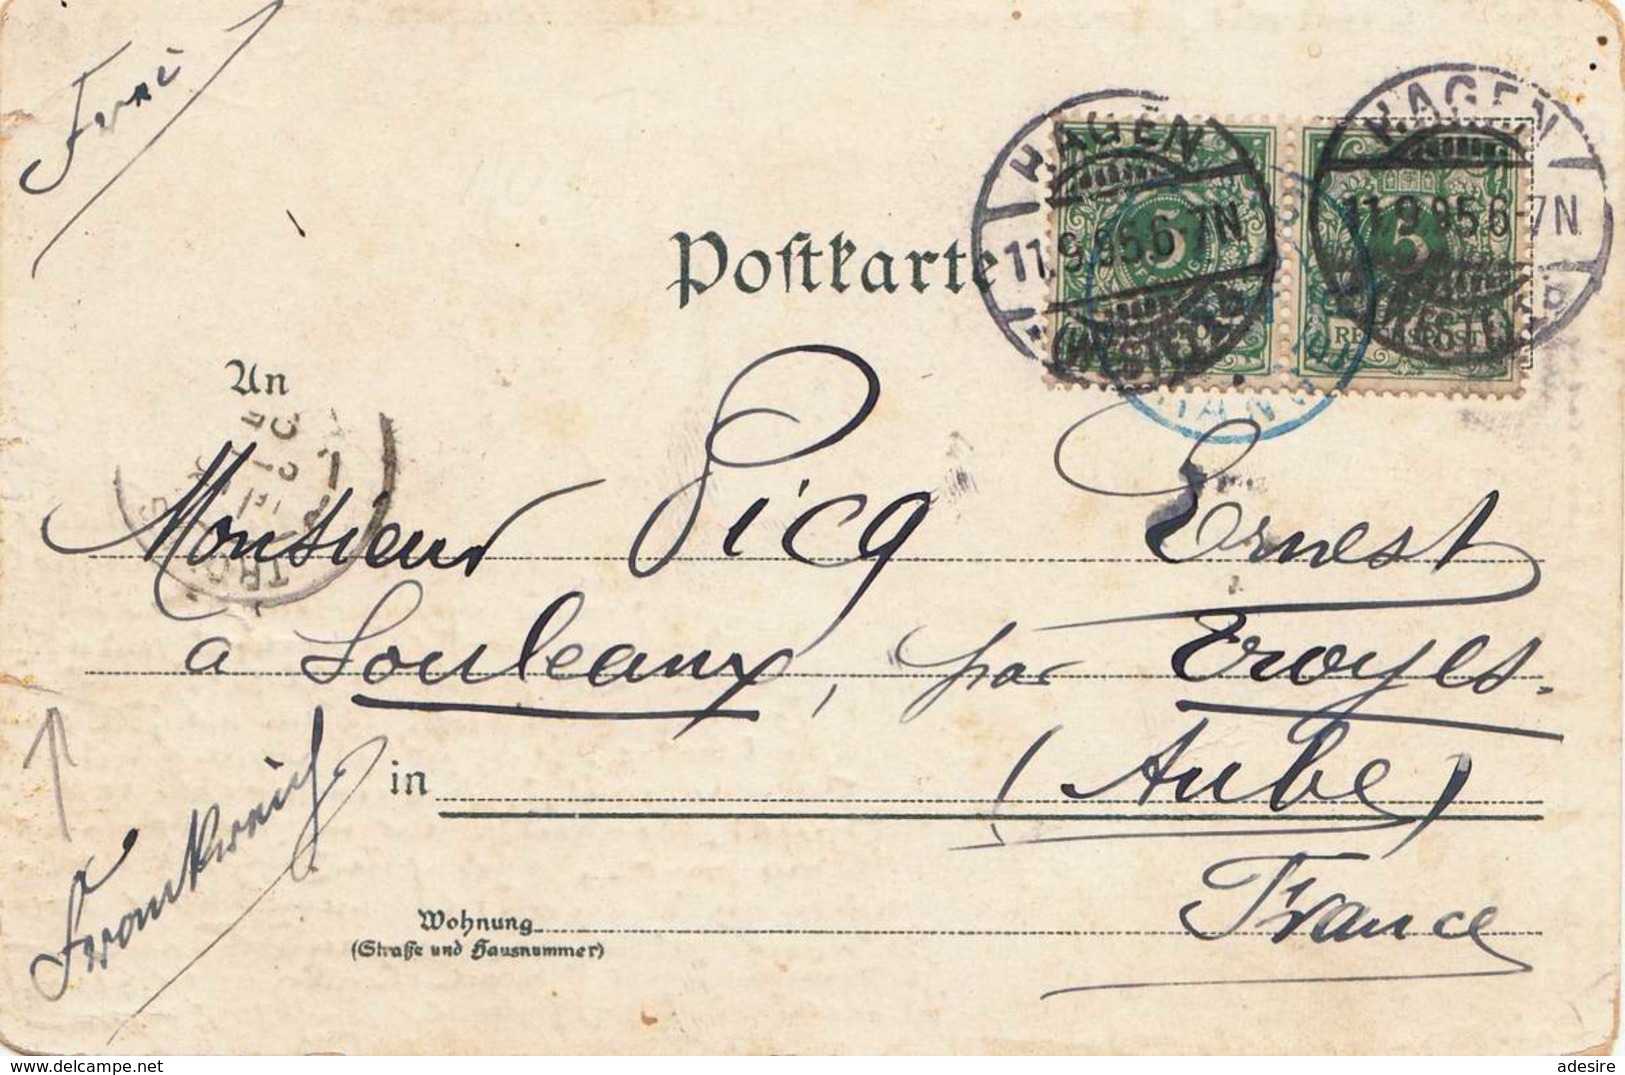 Frei
HAGEN
11.9.95.6-7N
(WESTF.)
HAGEN
11.9.95.6-7N
(WESTF.)
5
5
REICHSPOST
Postkarte
An
Monsieur Picq Ernest
a Souleaux, par Troyes.
in
(Aube)
Frankreich
Wohnung
(Straße und Hausnummer)
France
www.delcampe.net
adesire